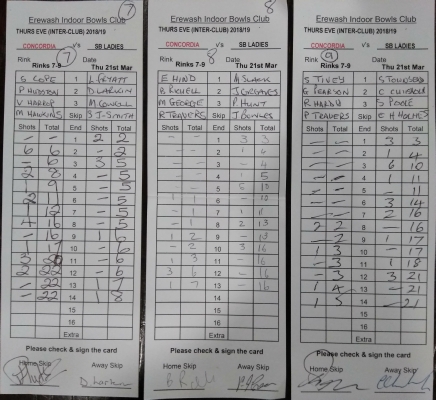 7
Erewash Indoor Bowls Club
THURS EVE (INTER-CLUB) 2018/19
CONCORDIA v's SB LADIES
Rink 7 Date
Rinks 7-9 Thu 21st Mar
S COPE 1 L PRATT
P HUDSON 2 D LARKIN
V HARROP 3
M HAWKINS Skip S J SMITH
Shots Total End Shots Total
- - 1 2 2
6 6 2 - 2
- 6 3 3 5
2 8 4 - 5
1 9 5 - 5
6 - 5
7 - 5
4 16 8 - 5
- 16 9 1 6
1 17 10 - 6
11 - 6
2 22 12 - 6
- 22 13 1 7
- 22 14 1 8
15
16
Extra
Please check & sign the card
Home Skip Away Skip
D Larkin
8
Erewash Indoor Bowls Club
THURS EVE (INTER-CLUB) 2018/19
CONCORDIA v's SB LADIES
Rink 8 Date
Rinks 7-9 Thu 21st Mar
E HIND 1 A SLACK
B RICHELL 2 J GREAVES
M GEORGE 3 P HUNT
R TRADERS Skip J BOWLES
Shots Total End Shots Total
- - 1 3 3
2 - 3
3 - 4
4 1 5
5 5 10
1 1 6 - 10
- 1 7 1 11
- 1 8 2 13
1 2 9 - 13
- 2 10 3 16
1 3 11 - 16
3 6 12 - 16
1 7 13 - 16
14
15
16
Extra
Please check & sign the card
Home Skip Away Skip
Erewash Indoor Bowls Club
THURS EVE (INTER-CLUB) 2018/19
CONCORDIA v's SB LADIES
Rink 9 Date
Rinks 7-9 Thu 21st Mar
S TIVEY 1 S TOWNSEND
G PEARSON 2
R HARDY 3 S POOLE
P TRADERS Skip C HOLMES
Shots Total End Shots Total
- - 1 3 3
- - 2 1 4
- - 3 6 10
- - 4 1 11
- - 5 - 11
- - 6 3 14
- - 7 2 16
2 2 8 - 16
- 2 9 1 17
1 3 10 - 17
- 3 11 1 18
- 3 12 3 21
1 4 13 - 21
1 5 14 - 21
15
16
Extra
Please check & sign the card
Home Skip Away Skip